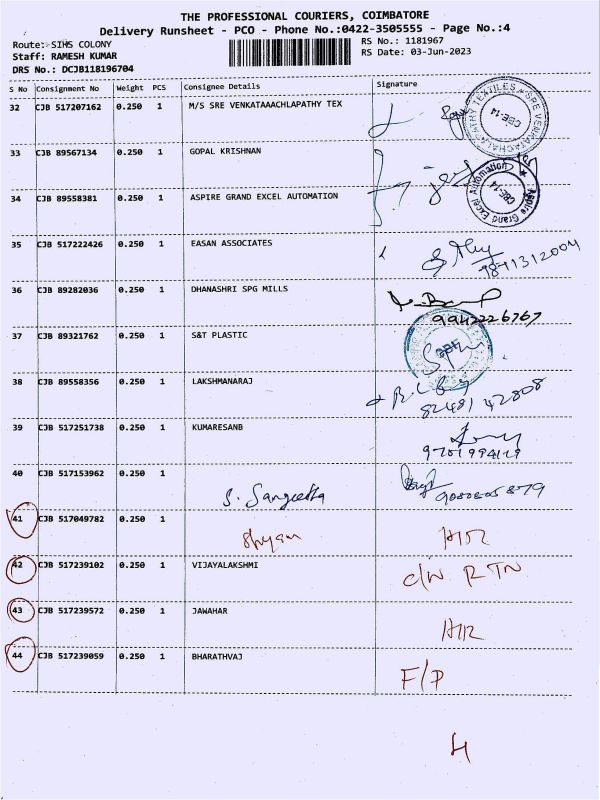 THE PROFESSIONAL COURIERS, COIMBATORE
Delivery Runsheet - PCO - Phone No.:0422-3505555 - Page No.:4
Route: SIHS COLONY
RS No.: 1181967
Staff: RAMESH KUMAR
RS Date: 03-Jun-2023
DRS No.: DCJB118196704
S No Consignment No Weight PCS Consignee Details Signature
32 CJB 517207162 0.250 1 M/S SRE VENKATAAACHLAPATHY TEX
SRE VENKATACHALAPATHY TEXTILES CBE-14
33 CJB 89567134 0.250 1 GOPAL KRISHNAN
34 CJB 89558381 0.250 1 ASPIRE GRAND EXCEL AUTOMATION
Aspire Grand Excel Automation CBE-14
35 CJB 517222426 0.250 1 EASAN ASSOCIATES
36 CJB 89282036 0.250 1 DHANASHRI SPG MILLS
9942226767
37 CJB 89321762 0.250 1 S&T PLASTIC
38 CJB 89558356 0.250 1 LAKSHMANARAJ
82481 42808
39 CJB 517251738 0.250 1 KUMARESANB
40 CJB 517153962 0.250 1
S. Sangeetha
41 CJB 517049782 0.250 1
Shyam
42 CJB 517239102 0.250 1 VIJAYALAKSHMI
C/W RTN
43 CJB 517239572 0.250 1 JAWAHAR
44 CJB 517239059 0.250 1 BHARATHVAJ
F/P
4